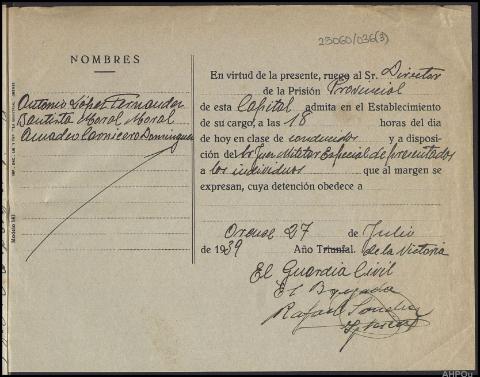 25060/036(3)
NOMBRES
Antonio López Fernandez
Bautista Moral Moral
Amadeo Carnicero Dominguez
En virtud de la presente, ruego al Sr. Director
de la Prisión Provincial
de esta Capital admita en el Establecimiento
de su cargo, a las 18 horas del día
de hoy en clase de conducidos y a disposi-
ción del Sr Juez Militar Especial de presentados
a los individuos que al margen se
expresan, cuya detención obedece a
Orense 27 de Julio
de 1939 Año Triunfal. de la Victoria
El Guardia Civil
El Brigada
Rafael
Modelo 143
AHPOu